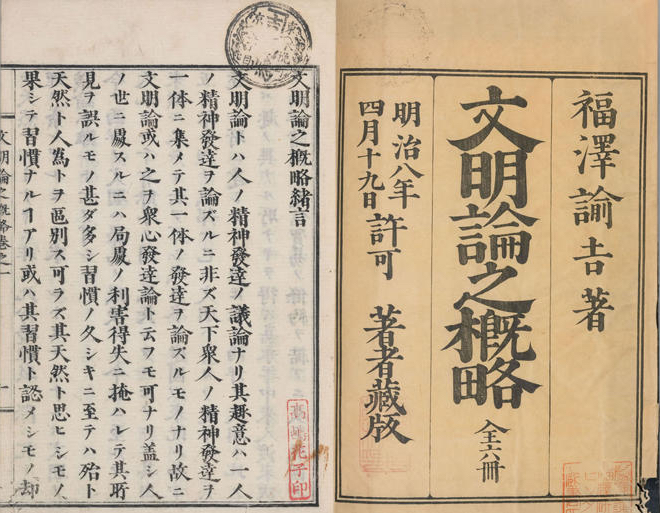 福澤諭吉著
文明論之概略
全六冊
明治八年
四月十九日
許可
著者藏版
文明論之概略緒言
文明論トハ人ノ精神發達ノ議論ナリ其趣意ハ一人
ノ精神發達ヲ論ズルニ非ズ天下衆人ノ精神發達ヲ
一体ニ集メテ其一体ノ發達ヲ論ズルモノナリ故ニ
文明論或ハ之ヲ衆心發達論ト云フモ可ナリ蓋シ人
ノ世ニ處スルニハ局處ノ利害得失ニ掩ハレテ其所
見ヲ誤ルモノ甚ダ多シ習慣ノ久シキニ至テハ殆ト
天然ト人爲トヲ區別ス可ラズ其天然ト思ヒシモノ
果シテ習慣ナルヿアリ或ハ其習慣ト認メシモノ却
文明論之概略卷之一
高嶋花子印